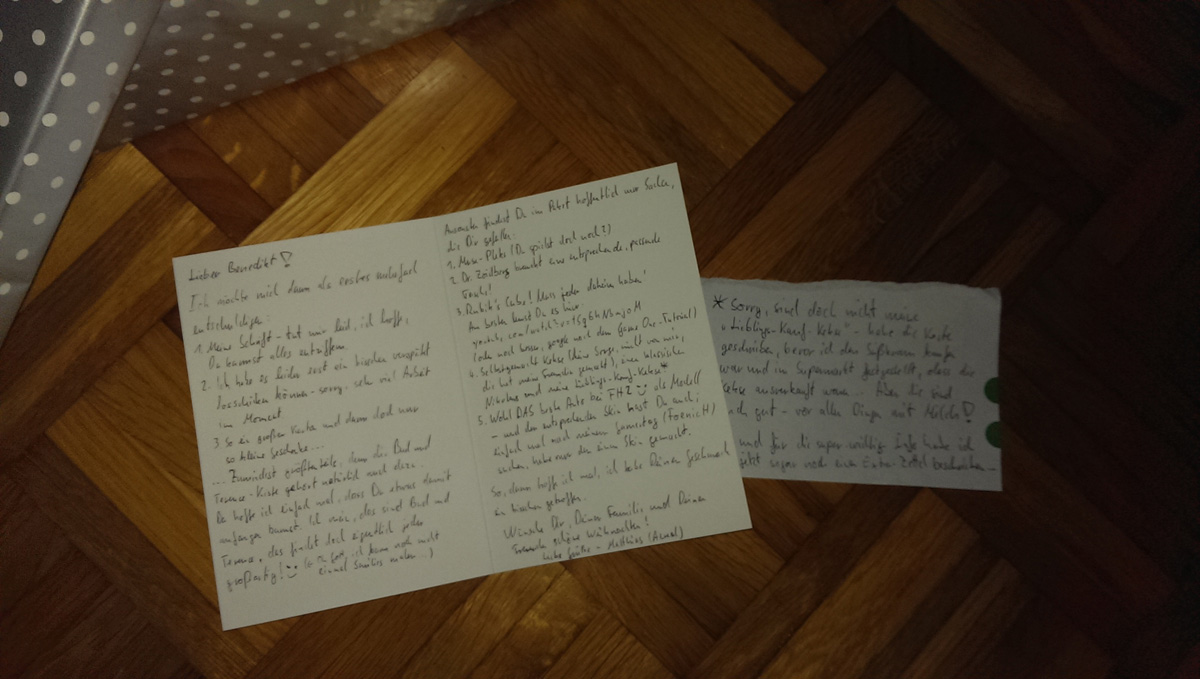 Lieber Benedikt!
Ich möchte mich dann als erstes mehrfach
entschuldigen:
1. Meine Schrift - tut mir leid, ich hoffe,
Du kannst alles entziffern.
2. Ich habe es leider erst ein bisschen verspätet
losschicken können - sorry - sehr viel Arbeit
im Moment
3. So ein großer Karton und dann doch nur
so kleine Geschenke...
... Zumindest größtenteils, denn die Bud und
Terence-Kiste gehört natürlich auch dazu.
Da hoffe ich einfach mal, dass Du etwas damit
anfangen kannst. Ich mein, das sind Bud und
Terence, das findet doch eigentlich jeder
großartig! (Oh Gott, ich kann noch nicht
einmal Smilies malen...)
Ansonsten findest Du im Paket hoffentlich nur Sachen,
die Dir gefallen:
1. Muse-Platte (Du spielst doch noch?)
2. Dr. Zoidberg braucht eine entsprechende, passende
3. Rubik's Cube! Muss jeder daheim haben!
Am besten lernst Du es hier:
(oder nach
4. Selbstgemachte Kekse (keine Sorge, nicht von mir,
die hat meine Freundin gemacht), einen klassischen
Nikolaus und meine Lieblings-Kauf-Kekse*
5. Wohl DAS beste Auto bei FH2 :) als Modell
- und den entsprechenden Skin hast Du auch:
einfach mal nach meinem Gamertag
suchen, habe extra den einen Skin gemacht.
So, dann hoffe ich mal, ich habe Deinen Geschmack
ein bisschen getroffen.
Wünsche Dir, Deiner Familie und Deinen
Freunden schöne Weihnachten!
Liebe Grüße - Matthias
* Sorry, sind doch nicht meine
"Lieblings-Kauf-Kekse" - habe die Karte
geschrieben, bevor ich den Süßkram kaufen
war und im Supermarkt festgestellt, dass die
Kekse ausverkauft waren... Aber die sind
auch gut - vor allen Dingen mit Milch!
und für die super wichtige Info habe ich
jetzt sogar noch einen Extra-Zettel beschrieben...